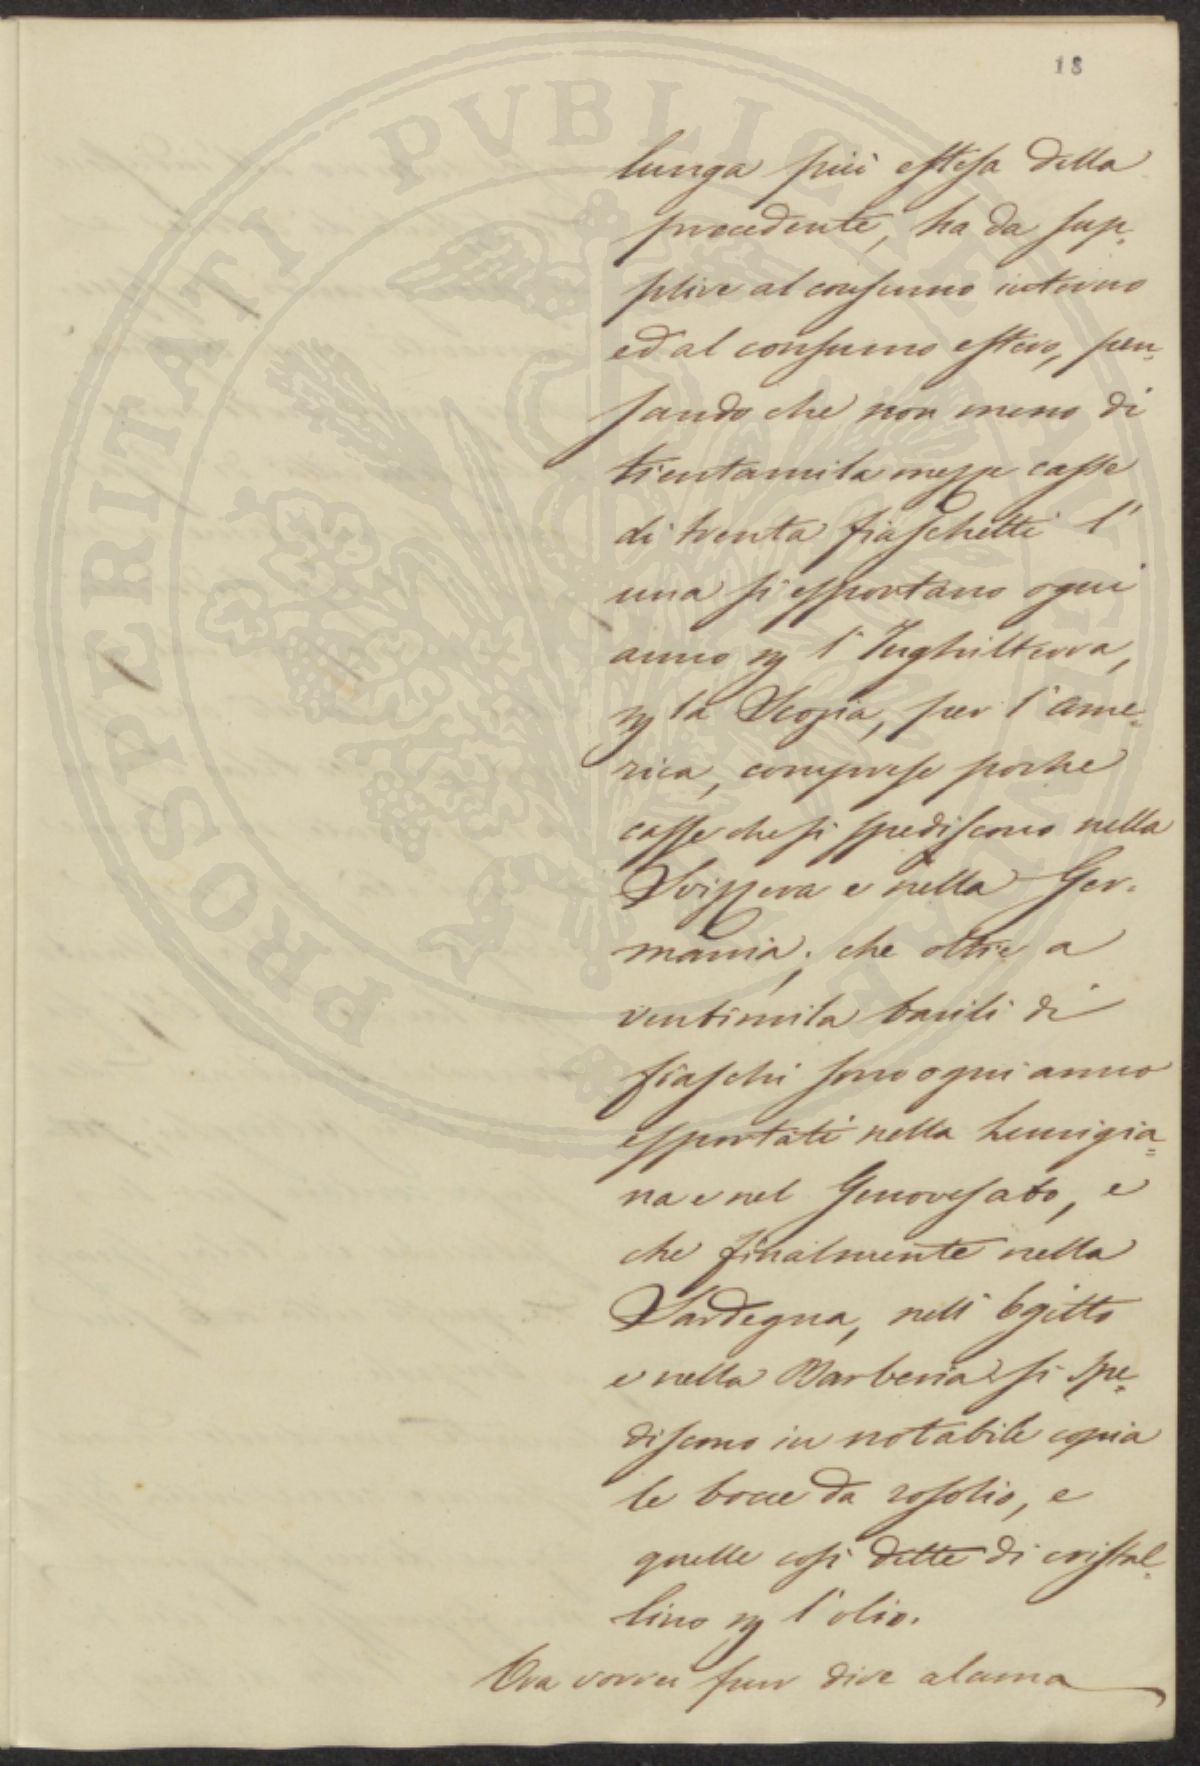 18
PROSPERITATI PVBLICAE AVGENDAE
lunga più estesa della
precedente, ha da sup=
plire al consumo interno
ed al consumo estero, pen=
sando che non meno di
trentamila mezze casse
di trenta fiaschetti l'
una si esportano ogni
anno p l'Inghilterra,
p la Scozia, per l'ame=
rica, comprese poche
casse che si spediscono nella
Svizzera e nella Ger=
mania; che oltre a
ventimila barili di
fiaschi sono ogni anno
esportati nella Lunigia=
na e nel Genovesato, e
che finalmente nella
Sardegna, nell'Egitto
e nella Barberia si spe=
discono in notabile copia
le bocce da rosolio, e
quelle così dette di cristal=
lino p l'olio.
Ora vorrei pur dire alcuna